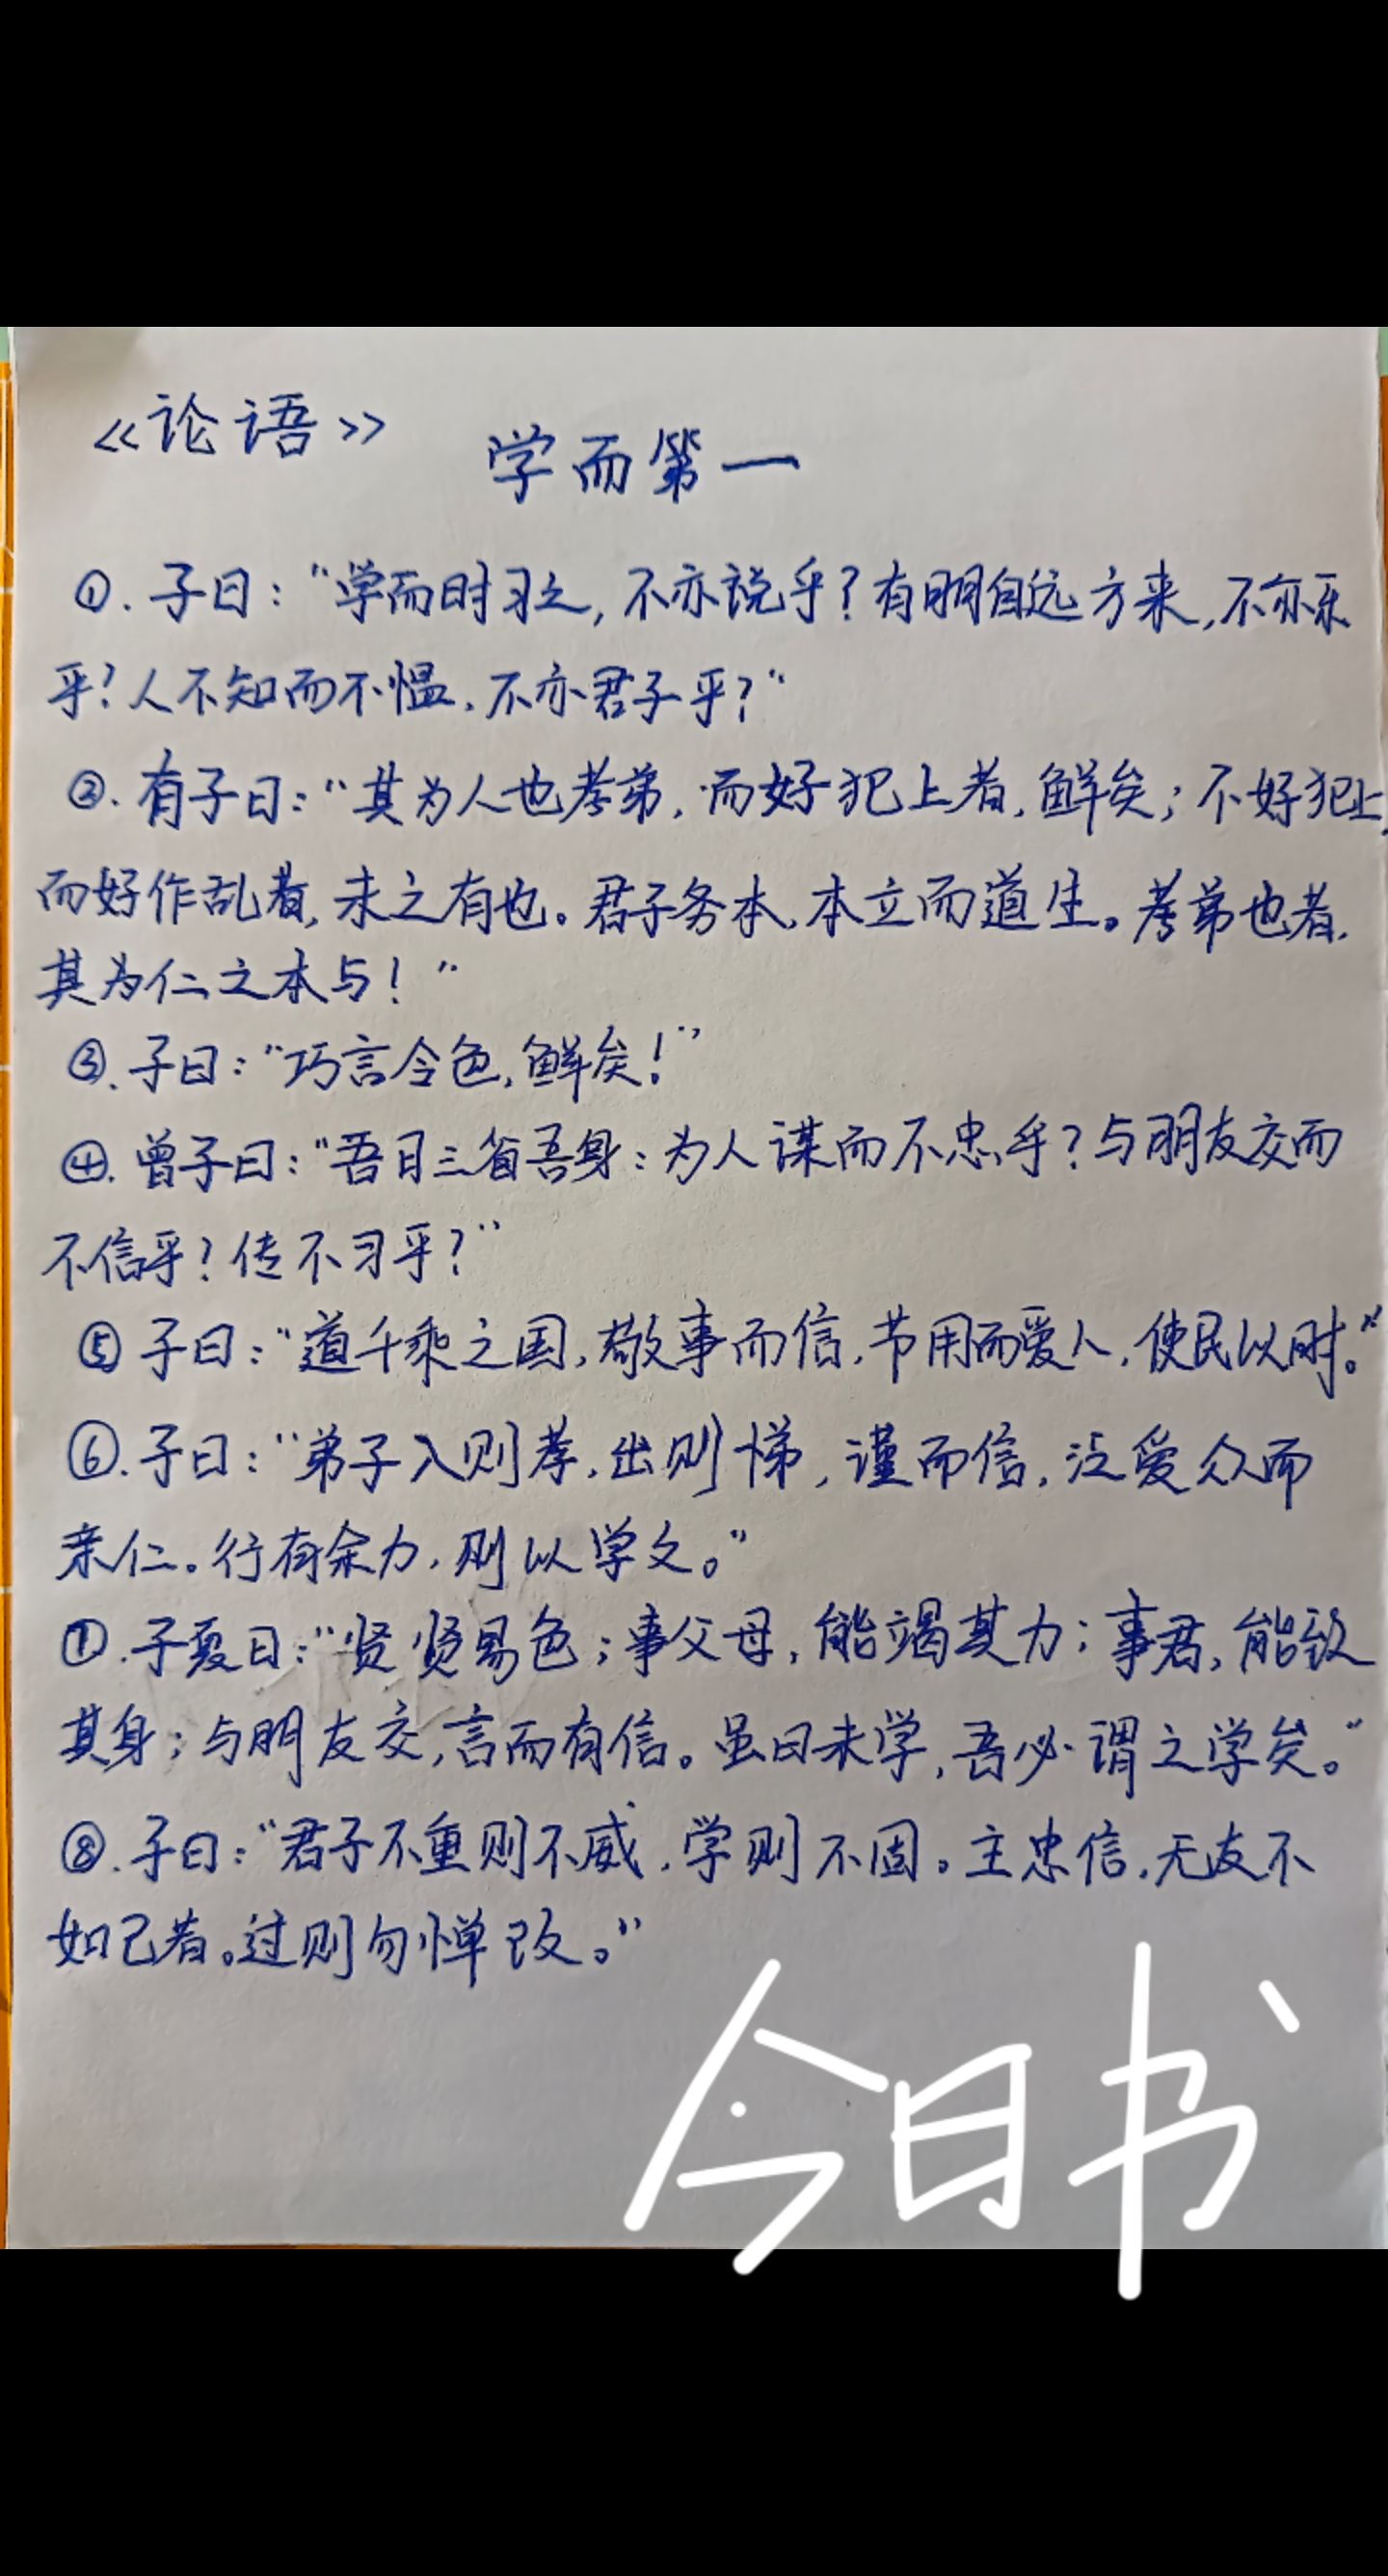 《论语》
学而第一
①.子曰:“学而时习之,不亦说乎?有朋自远方来,不亦乐
乎?人不知而不愠,不亦君子乎?”
②.有子曰:“其为人也孝弟,而好犯上者,鲜矣;不好犯上,
而好作乱者,未之有也。君子务本,本立而道生。孝弟也者,
其为仁之本与!”
③.子曰:“巧言令色,鲜矣!”
④.曾子曰:“吾日三省吾身:为人谋而不忠乎?与朋友交而
不信乎?传不习乎?”
⑤子曰:“道千乘之国,敬事而信,节用而爱人,使民以时。”
⑥.子曰:“弟子入则孝,出则悌,谨而信,泛爱众而
亲仁。行有余力,则以学文。”
⑦.子夏曰:“贤贤易色;事父母,能竭其力;事君,能致
其身;与朋友交,言而有信。虽曰未学,吾必谓之学矣。”
⑧.子曰:“君子不重则不威,学则不固。主忠信,无友不
如己者。过则勿惮改。”
今日书